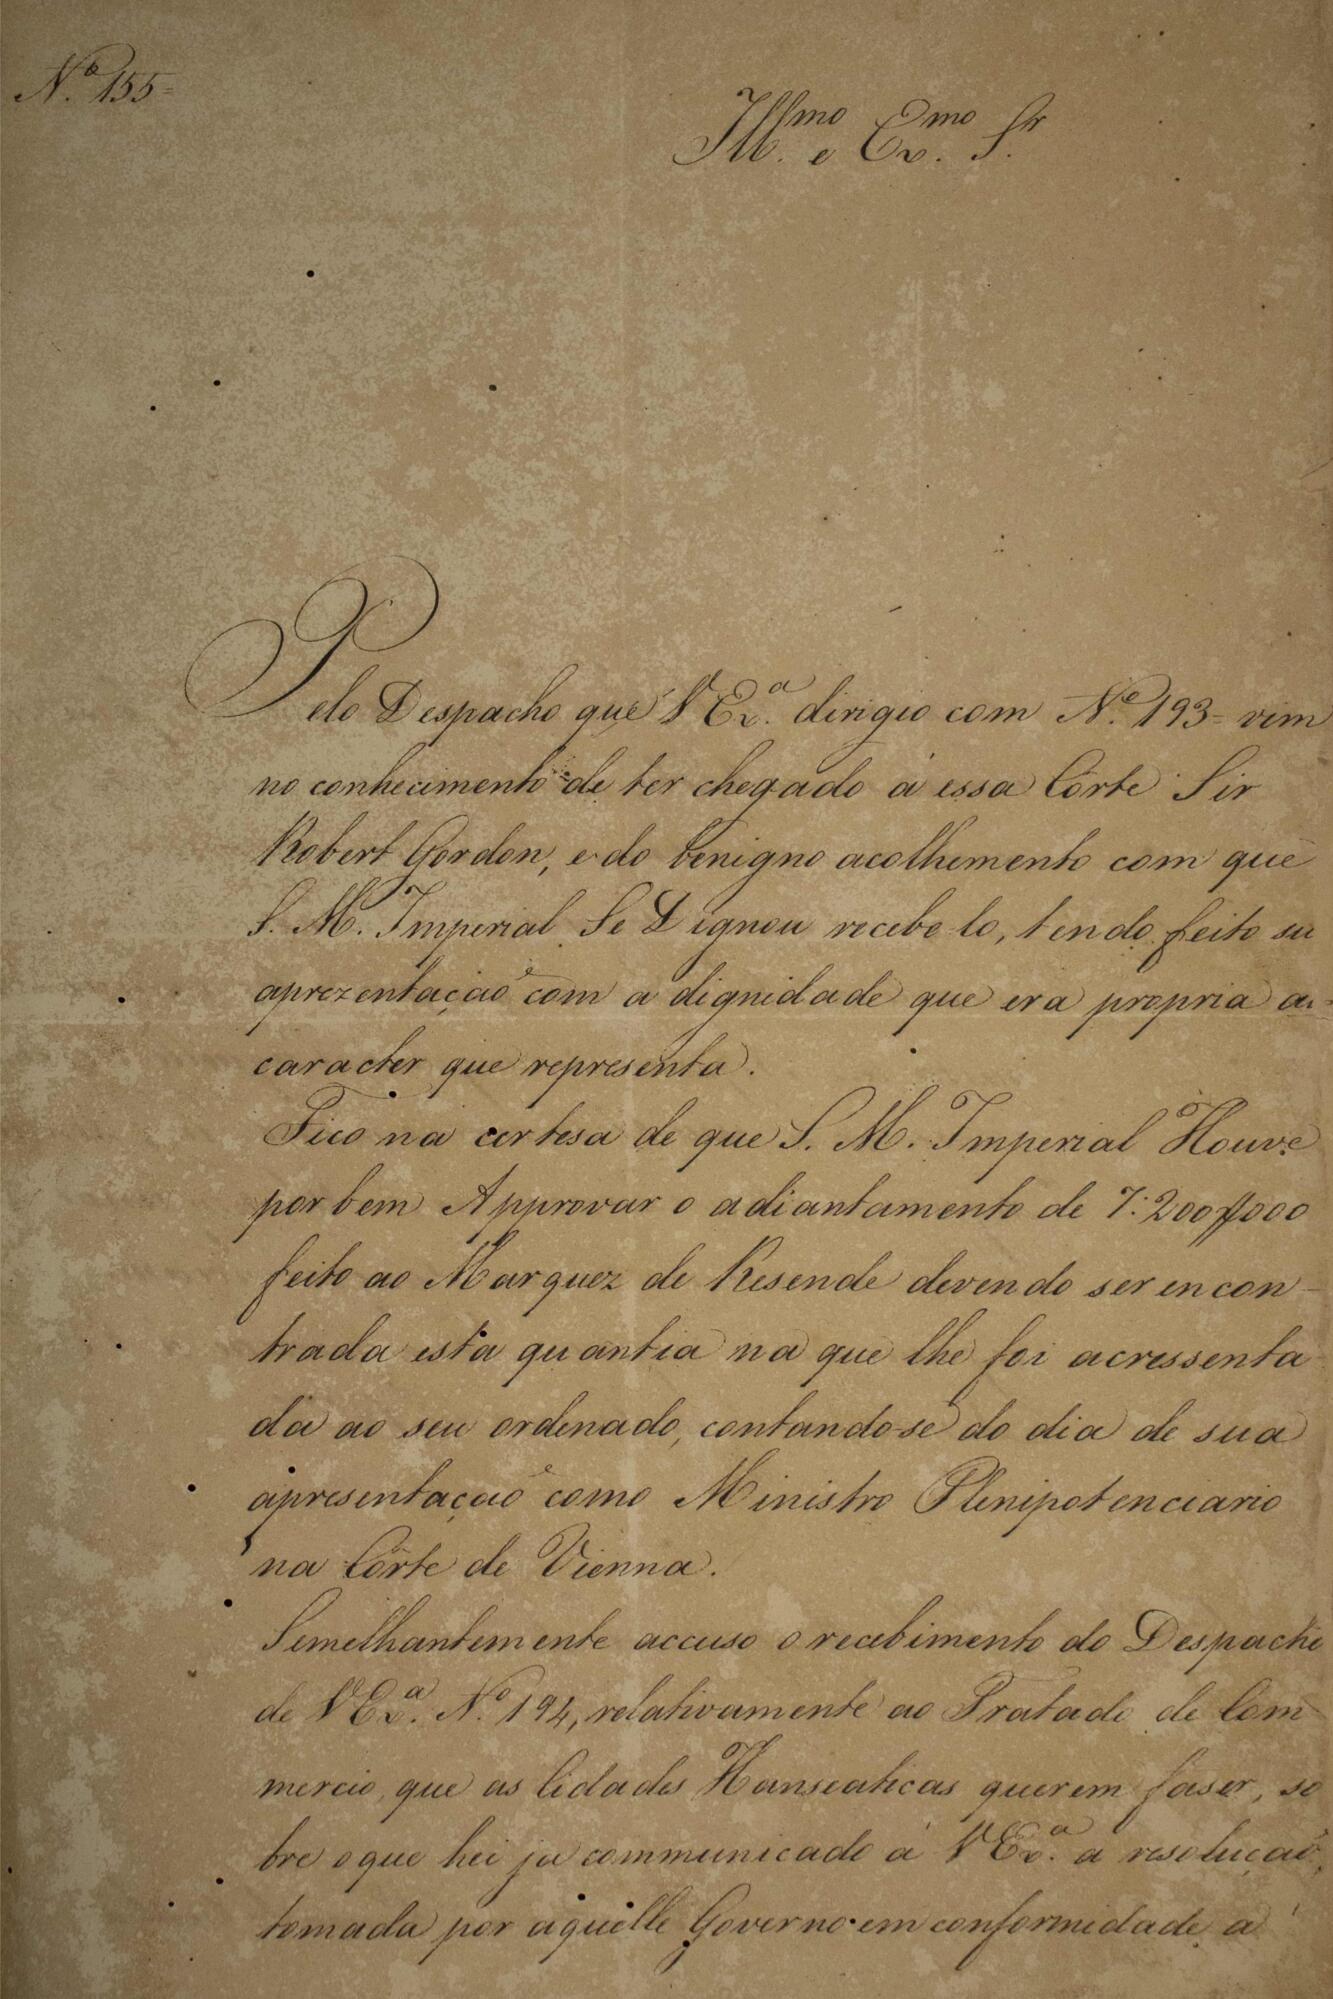 Nº 155=
Illmo. e Exmo. Sr.
Pelo Despacho que V Exa. dirigio com Nº 193= vim
no conhecimento de ter chegado á essa Côrte Sir
Robert Gordon, e do benigno acolhimento com que
S. M. Imperial Se Dignou recebe-lo, tendo feito su
aprezentação com a dignidade que era propria ao
caracter que representa.
Fico na certesa de que S. M. Imperial Houve
por bem Approvar o adiantamento de 7:200$000
feito ao Marquez de Resende devendo ser encon-
trada esta quantia na que lhe foi acressenta
da ao seu ordenado, contando-se do dia de sua
apresentação como Ministro Plenipotenciario
na Côrte de Vienna.
Semelhantemente accuso o recebimento do Despacho
de V Exa. Nº 194, relativamente ao Tratado de Com
mercio, que as Cidades Hanseaticas querem faser, so
bre o que hei ja communicado á V Exa. a resolução,
tomada por aquelle Governo em conformidade a